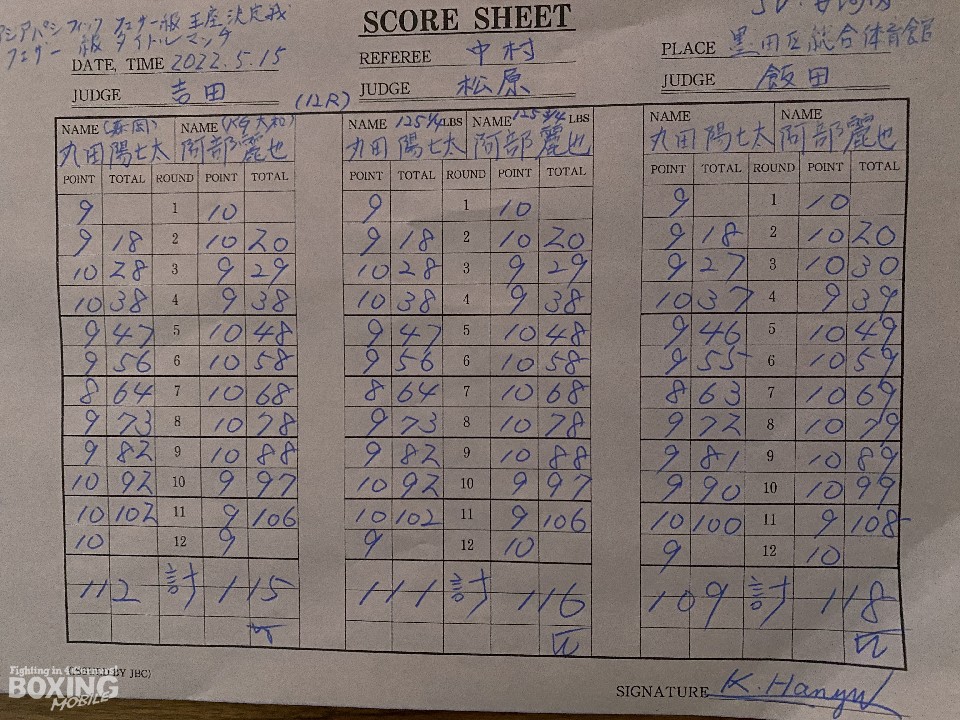 SCORE SHEET
アジアパシフィック フェザー級 王座決定戦
フェザー 級 タイトルマッチ
DATE, TIME 2022.5.15
REFEREE 中村
PLACE 墨田区総合体育館
JUDGE 吉田
(12R)
JUDGE 松原
JUDGE 飯田
NAME (森岡) NAME (KG大和)
丸田 陽七太 阿部 麗也
NAME 125 3/4 LBS NAME 125 3/4 LBS
丸田 陽七太 阿部 麗也
NAME NAME
丸田 陽七太 阿部 麗也
POINT TOTAL ROUND POINT TOTAL POINT TOTAL ROUND POINT TOTAL POINT TOTAL ROUND POINT TOTAL
9 1 10 9 1 10 9 1 10
9 18 2 10 20 9 18 2 10 20 9 18 2 10 20
10 28 3 9 29 10 28 3 9 29 9 27 3 10 30
10 38 4 9 38 10 38 4 9 38 10 37 4 9 39
9 47 5 10 48 9 47 5 10 48 9 46 5 10 49
9 56 6 10 58 9 56 6 10 58 9 55 6 10 59
8 64 7 10 68 8 64 7 10 68 8 63 7 10 69
9 73 8 10 78 9 73 8 10 78 9 72 8 10 79
9 82 9 10 88 9 82 9 10 88 9 81 9 10 89
10 92 10 9 97 10 92 10 9 97 9 90 10 10 99
10 102 11 9 106 10 102 11 9 106 10 100 11 9 108
10 12 9 9 12 10 9 12 10
112 計 115 111 計 116 109 計 118
BY JBC)
SIGNATURE K. Hanyu
BOXING
MOBILE